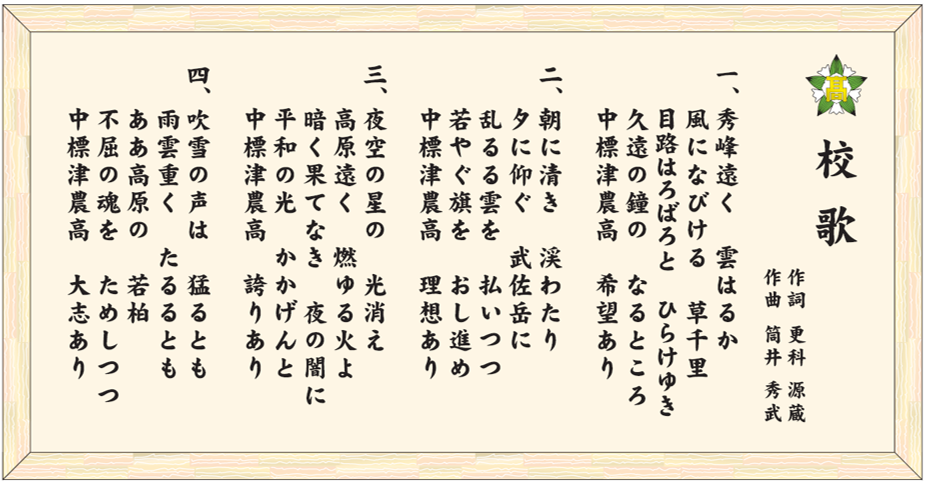 高
校歌
作詞 更科 源蔵
作曲 筒井 秀武
一、秀峰遠く 雲はるか
風になびける 草千里
目路はろばろと ひらけゆき
久遠の鐘の なるところ
中標津農高 希望あり
二、朝に清き 渓わたり
夕に仰ぐ 武佐岳に
乱るる雲を 払いつつ
若やぐ旗を おし進め
中標津農高 理想あり
三、夜空の星の 光消え
高原遠く 燃ゆる火よ
暗く果てなき 夜の闇に
平和の光 かかげんと
中標津農高 誇りあり
四、吹雪の声は 猛るとも
雨雲重く たるるとも
ああ高原の 若柏
不屈の魂を ためしつつ
中標津農高 大志あり